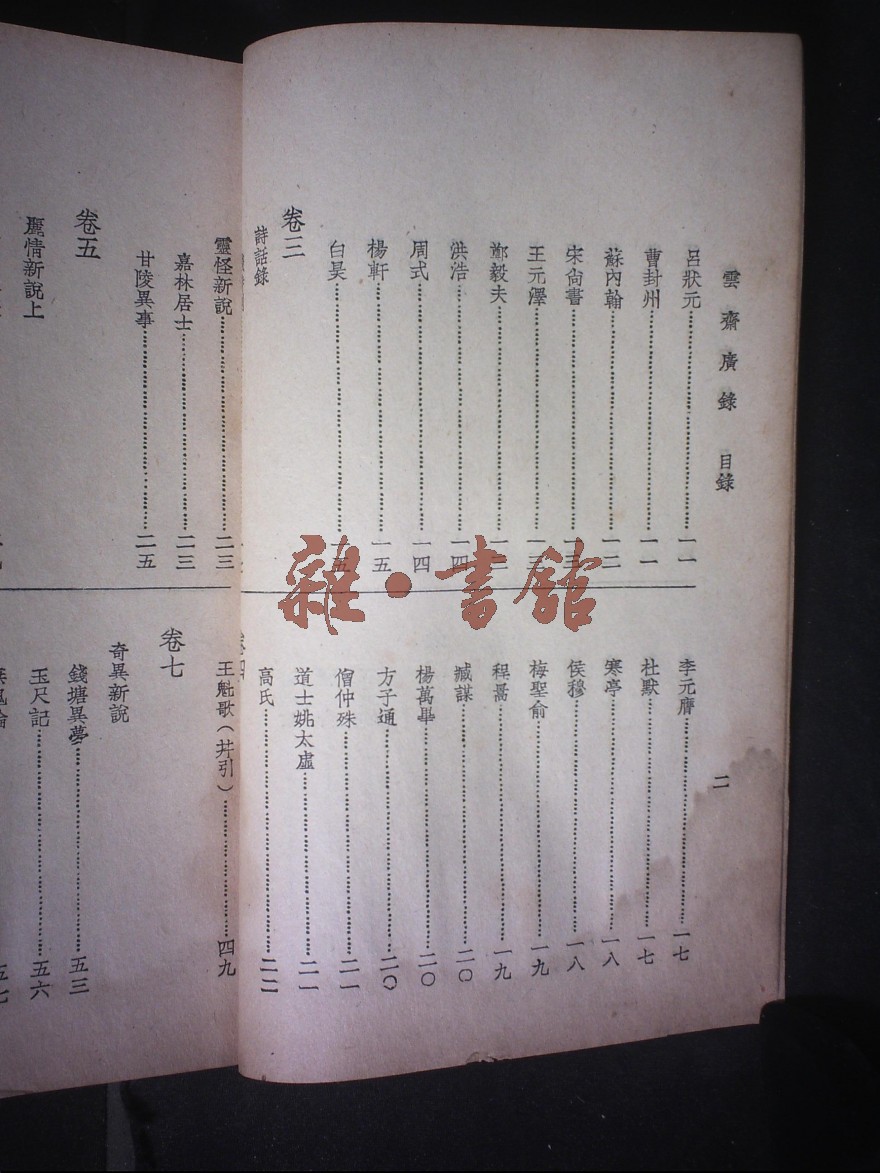 雲齋廣錄 目錄
二
呂狀元……一一
曹封州……一一
蘇內翰……一二
宋尙書……一三
王元澤……一三
鄭毅夫……一三
洪浩……一四
周式……一四
楊軒……一五
白昊……一五
卷三
詩話錄
李元膺……一七
杜默……一七
寒亭……一八
侯穆……一八
梅聖俞……一九
程暠……一九
臧謀……二〇
楊萬畢……二〇
方子通……二〇
僧仲殊……二一
道士姚太虛……二一
高氏……二二
卷四
靈怪新說……二三
嘉林居士……二三
甘陵異事……二五
卷五
麗情新說上
王魁歌(幷引)……四九
卷七
奇異新說
錢塘異夢……五三
玉尺記……五六
雜·書館